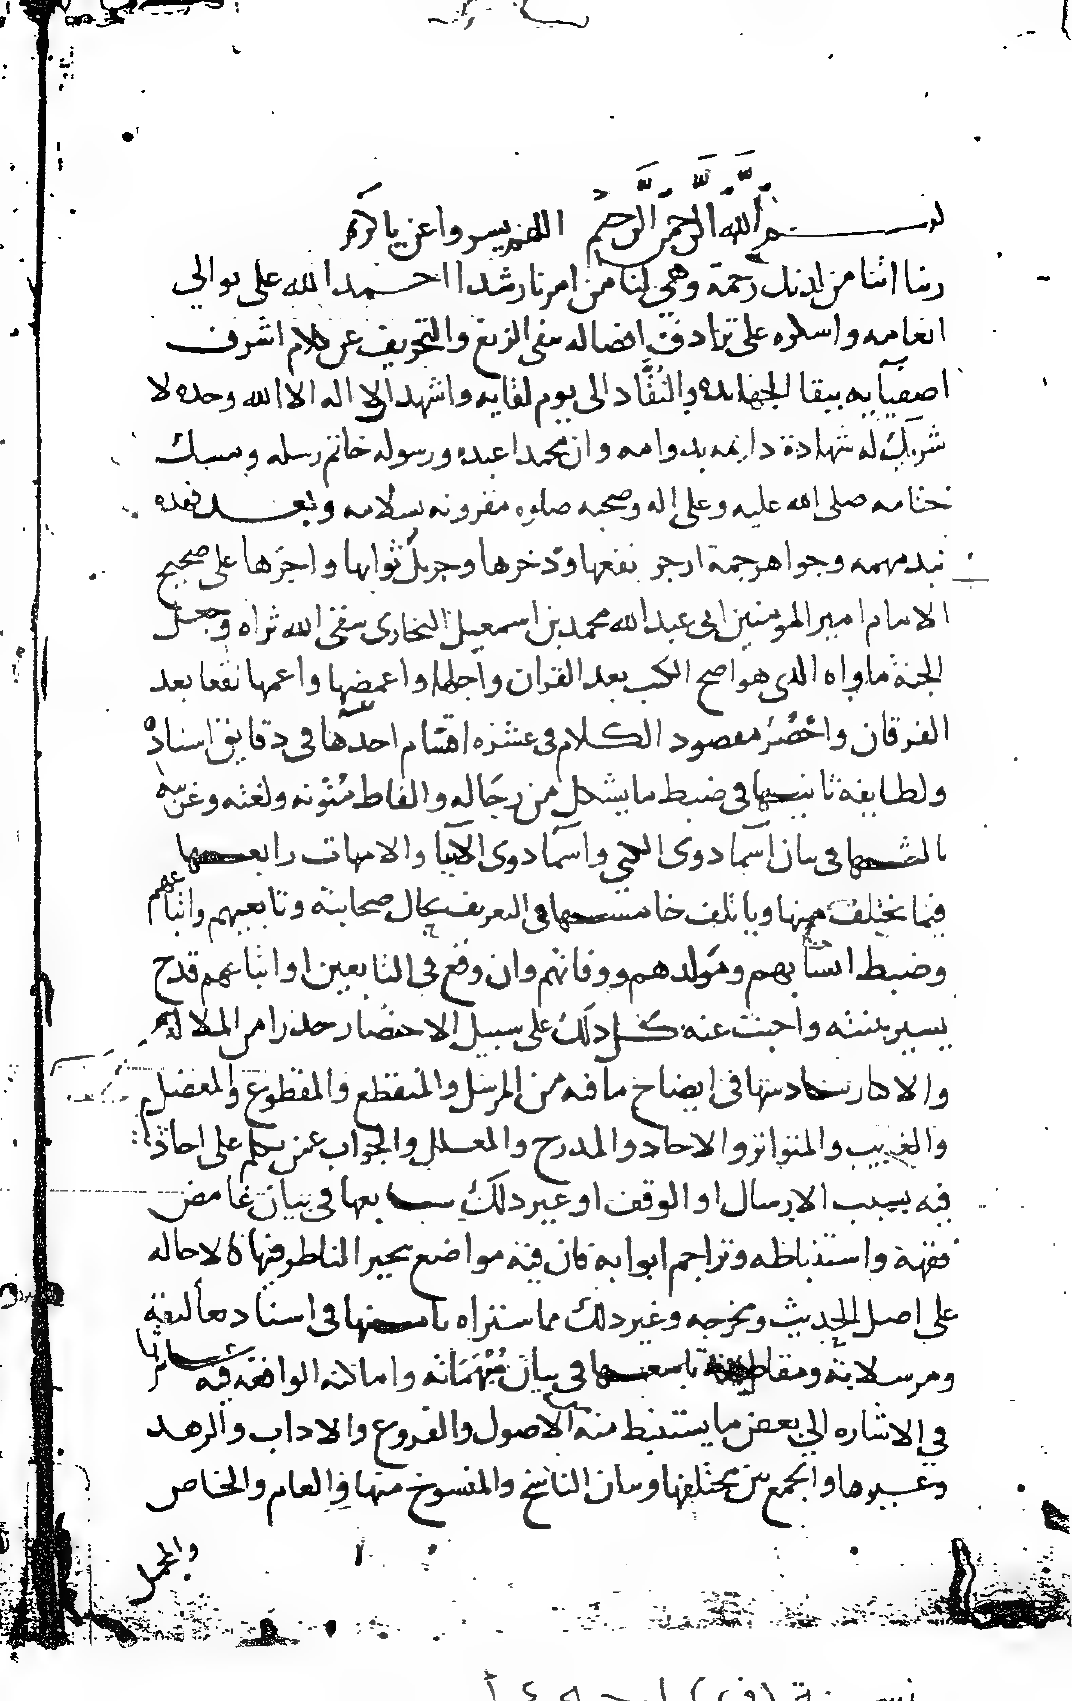 بسم الله الرحمن الرحيم اللهم يسر واعن يا كريم
ربنا اتنا من لدنك رحمة وهيي لنا من امرنا رشدا احمد الله على توالي
انعامه واشكره على ترادف افضاله منقى الزيغ والتحريف عن كلام اشرف
اصفيآيه ببقا الجهابذه والنُقّاد الى يوم لقايه واشهد ان لا اله الا الله وحده لا
شريك له شهادة دايمه بدوامه وان محمدا عبده ورسوله خاتم رسله ومسك
ختامه صلى الله عليه وعلى اله وصحبه صلوه مقرونه بسلامه وبعد فهذه
نبد مهمه وجواهر جمة ارجو نفعها وذخرها وجزيل ثوابها واجرها على صحيح
الامام امير المومنين ابي عبد الله محمد بن اسمعيل البخارى سقى الله ثراه وجعل
الجنة ماواه الذى هو اصح الكتب بعد القران واجلها واعمها نفعا بعد
الفرقان واحْصُرُ مقصود الكلام في عشره اقسام احدها في دقايق اسناده
ولطايفه ثانيها في ضبط ما يشكل من رجاله والفاظ متونه ولغته وغريبه
ثالثها في بيان اسما ذوى الكنى واسما ذوى الابآ والامهات رابعها
فيما يختلف منها وياتلف خامسها في التعريف بحال صحابته وتابعيهم واتباعهم
وضبط انسابهم ومولدهم ووفاتهم وان وقع في التابعين او اتباعهم قدح
يسير بينته واجبت عنه كل ذلك على سبيل الاختصار حذرا من الملالة
والاكثار سادسها في ايضاح ما فيه من المرسل والمنقطع والمقطوع والمعضل
والغريب والمتواتر والاحاد والمدرج والمعلل والجواب عمن تكلم على احاديث
فيه بسبب الارسال او الوقف او غير ذلك سابعها في بيان غامض
فقهه واستنباطه وتراجم ابوابه فان فيه مواضع يتحير الناظر فيها كالاحاله
على اصل الحديث ومخرجه وغير ذلك مما ستراه ثامنها في اسناد تعاليقه
ومرسلاته ومقاطيعه تاسعها في بيان مُبْهَمَاته واماكنه الواقعه فيه عاشرها
في الاشاره الى بعض ما يستنبط منه من الاصول والفروع والاداب والزهد
وغيرها والجمع بين مختلفها وبيان الناسخ والمنسوخ منها والعام والخاص
والمجمل